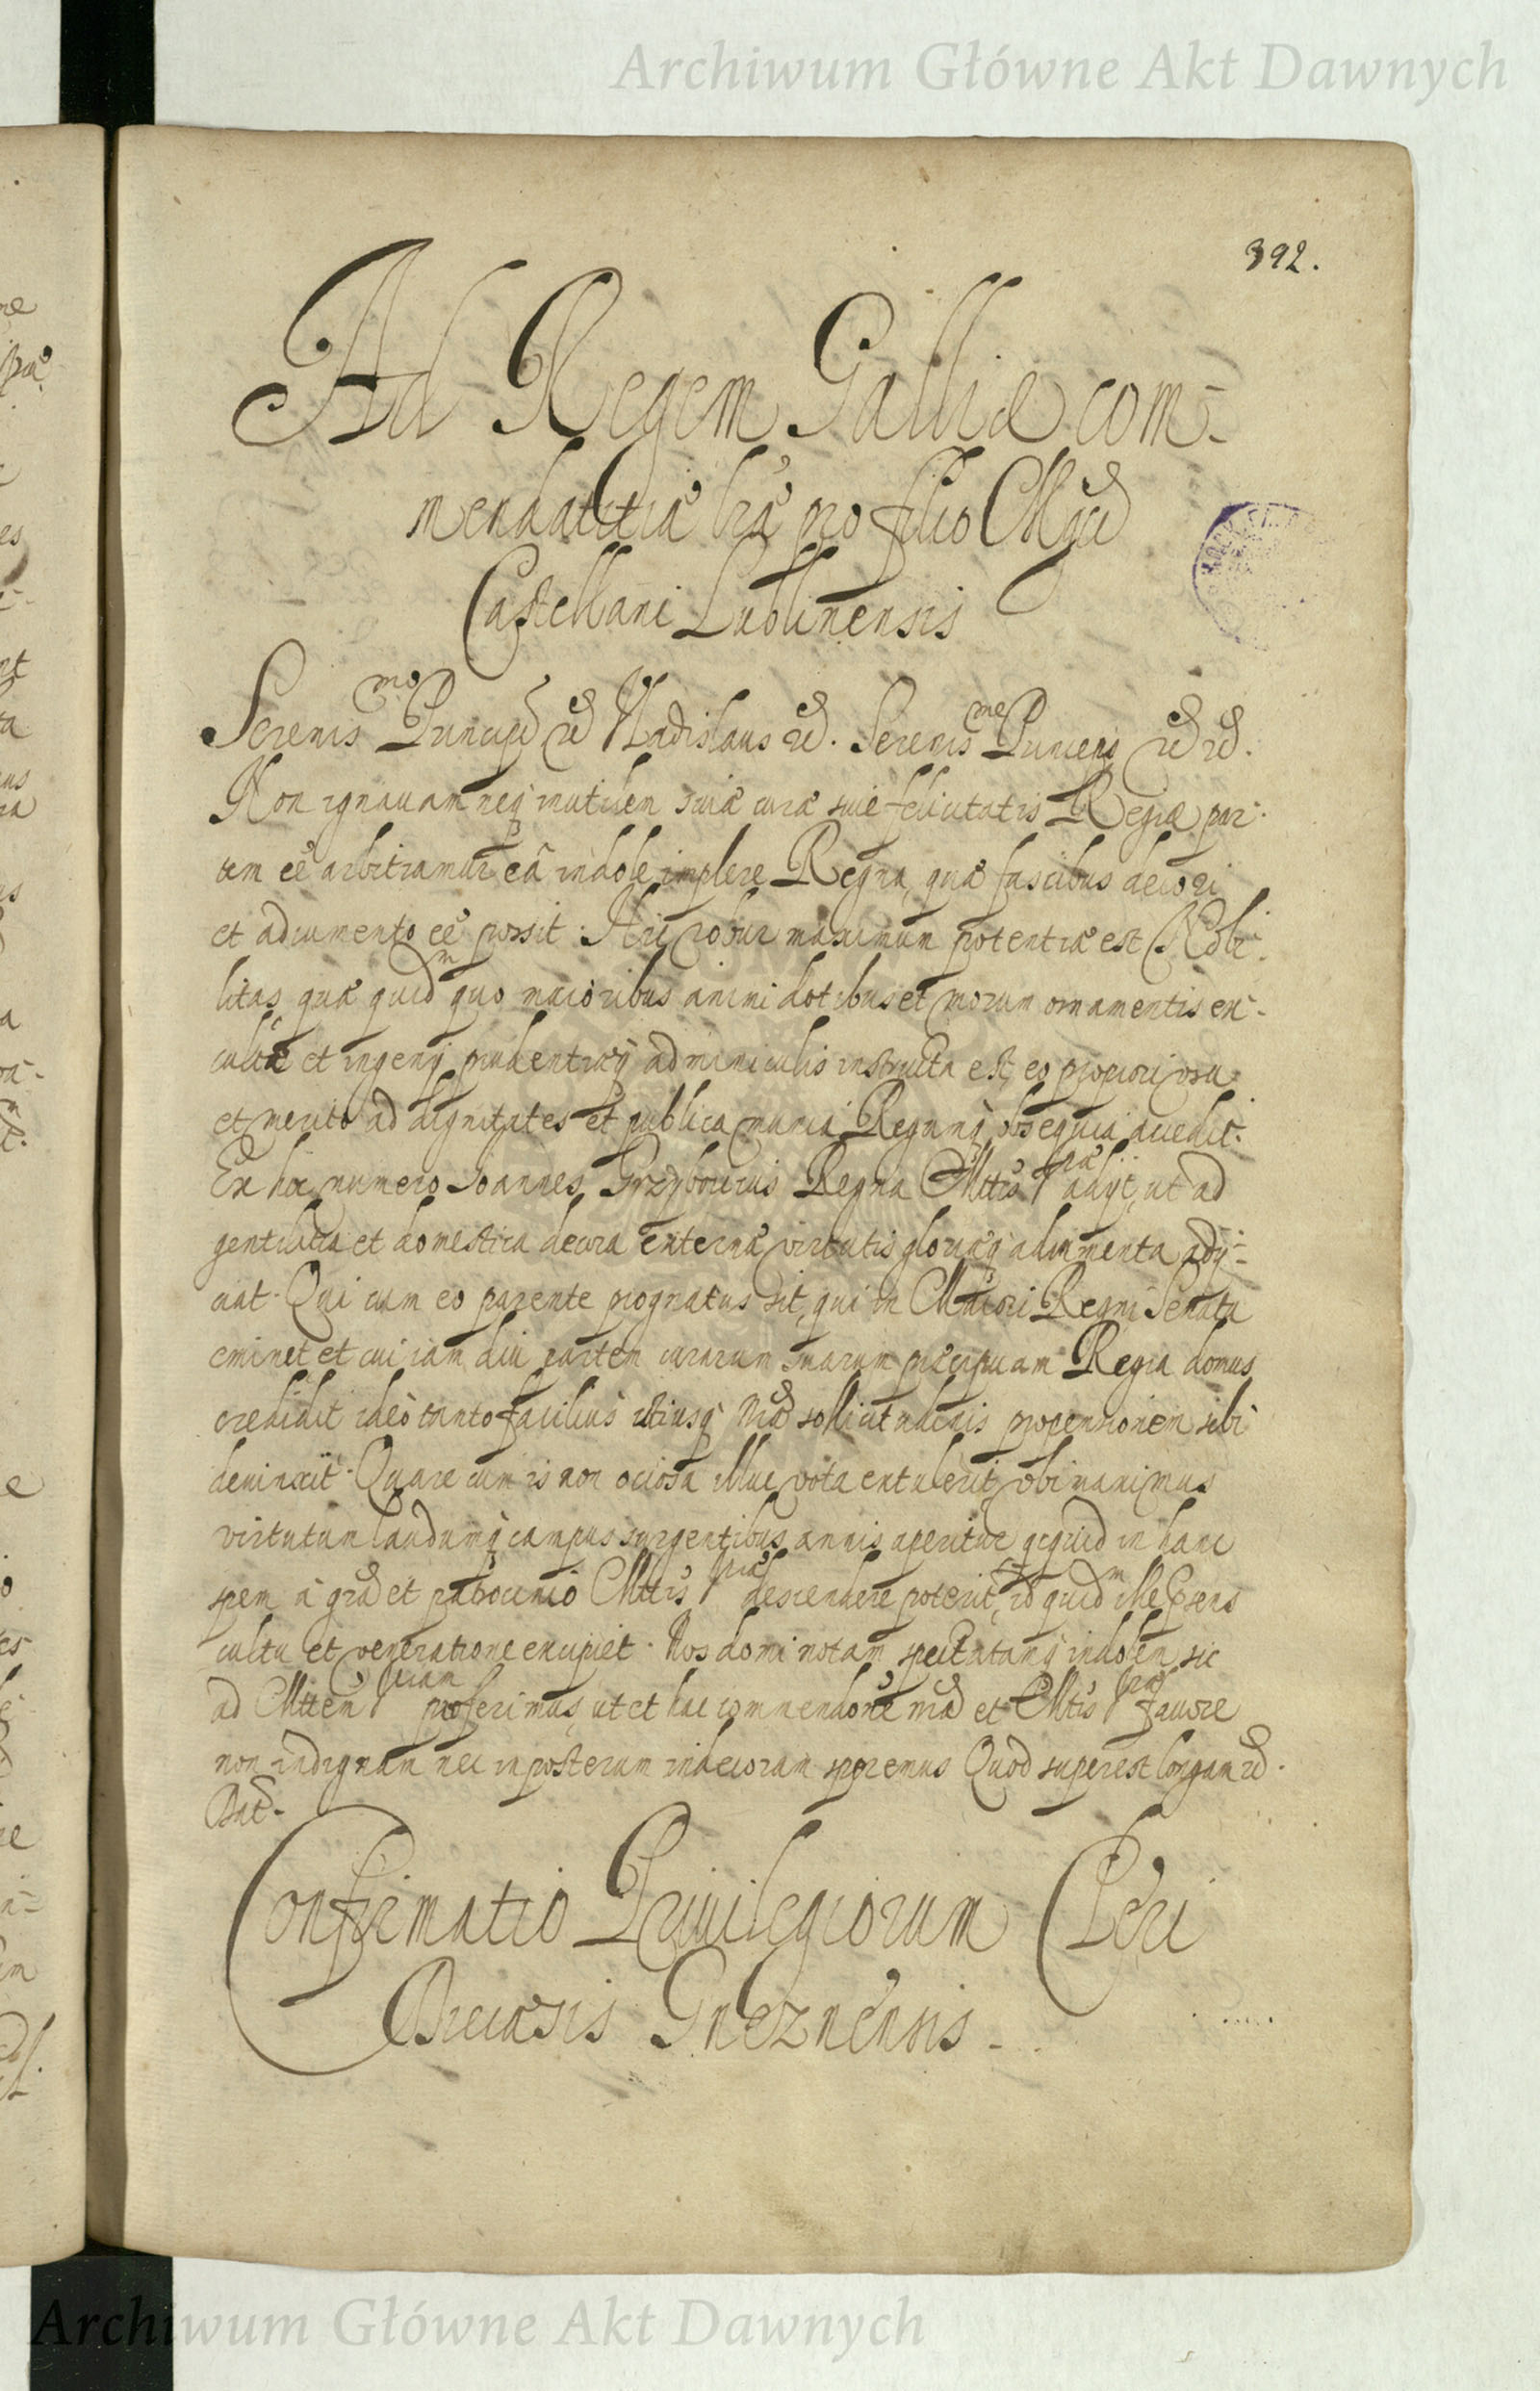 Archiwum Główne Akt Dawnych
392.
Ad Regem Galliæ com-
mendatitiæ lræ pro filio Mgci
Castellani Lublinensis
Serenismo Principi etc Vladislaus etc. Serenisme Princeps etc etc.
Non ignauam neq inutilem curæ suæ felicitatis Regiæ par-
tem eê arbitramur eâ indole implere Regna, quæ fascibus decori
et adiumento eê possit. robur maximum potentiæ est Nobi-
litas, quæ quidm quo maioribus animi dotibus et morum ornamentis ex-
culta et ingenij prudentiæq adminiculis instructa est, eo propiori
et merito ad dignitates et publica munia Regumq obsequia accedit.
Ex hoc numero Joannes Regna Mttis Vræ adijt, ut ad
gentilitia et domestica decora externæ virtutis gloriæq adiumenta adij-
ciat. Qui cum eo parente prognatus sit, qui in Maiori Regni Senatu
eminet et cui iam diu partem curarum suarum præcipuam Regia domus
credidit ideò tanto facilius nræ sollicitudinis propensionem sibi
deuinxit. Quare cum is non ociosa illuc vota extulerit, vbi maximus
virtutum laudumq campus surgentibus annis aperitur qcquid in hanc
spem à grâ et patrocinio Mttis Vræ descendere poterit, id quidm
cultu et veneratione excipiet. Nos domi notam spectatamq indolem sic
ad Mttem Vram proferimus, ut et hac commendaone nrâ et Mttis Vræ fauore
non indignam nec in posterum indecoram speremus Quod superest longam etc.
Dat.
Confirmatio Priuilegiorum Cleri
Diecæsis Gneznensis -
Archiwum Główne Akt Dawnych